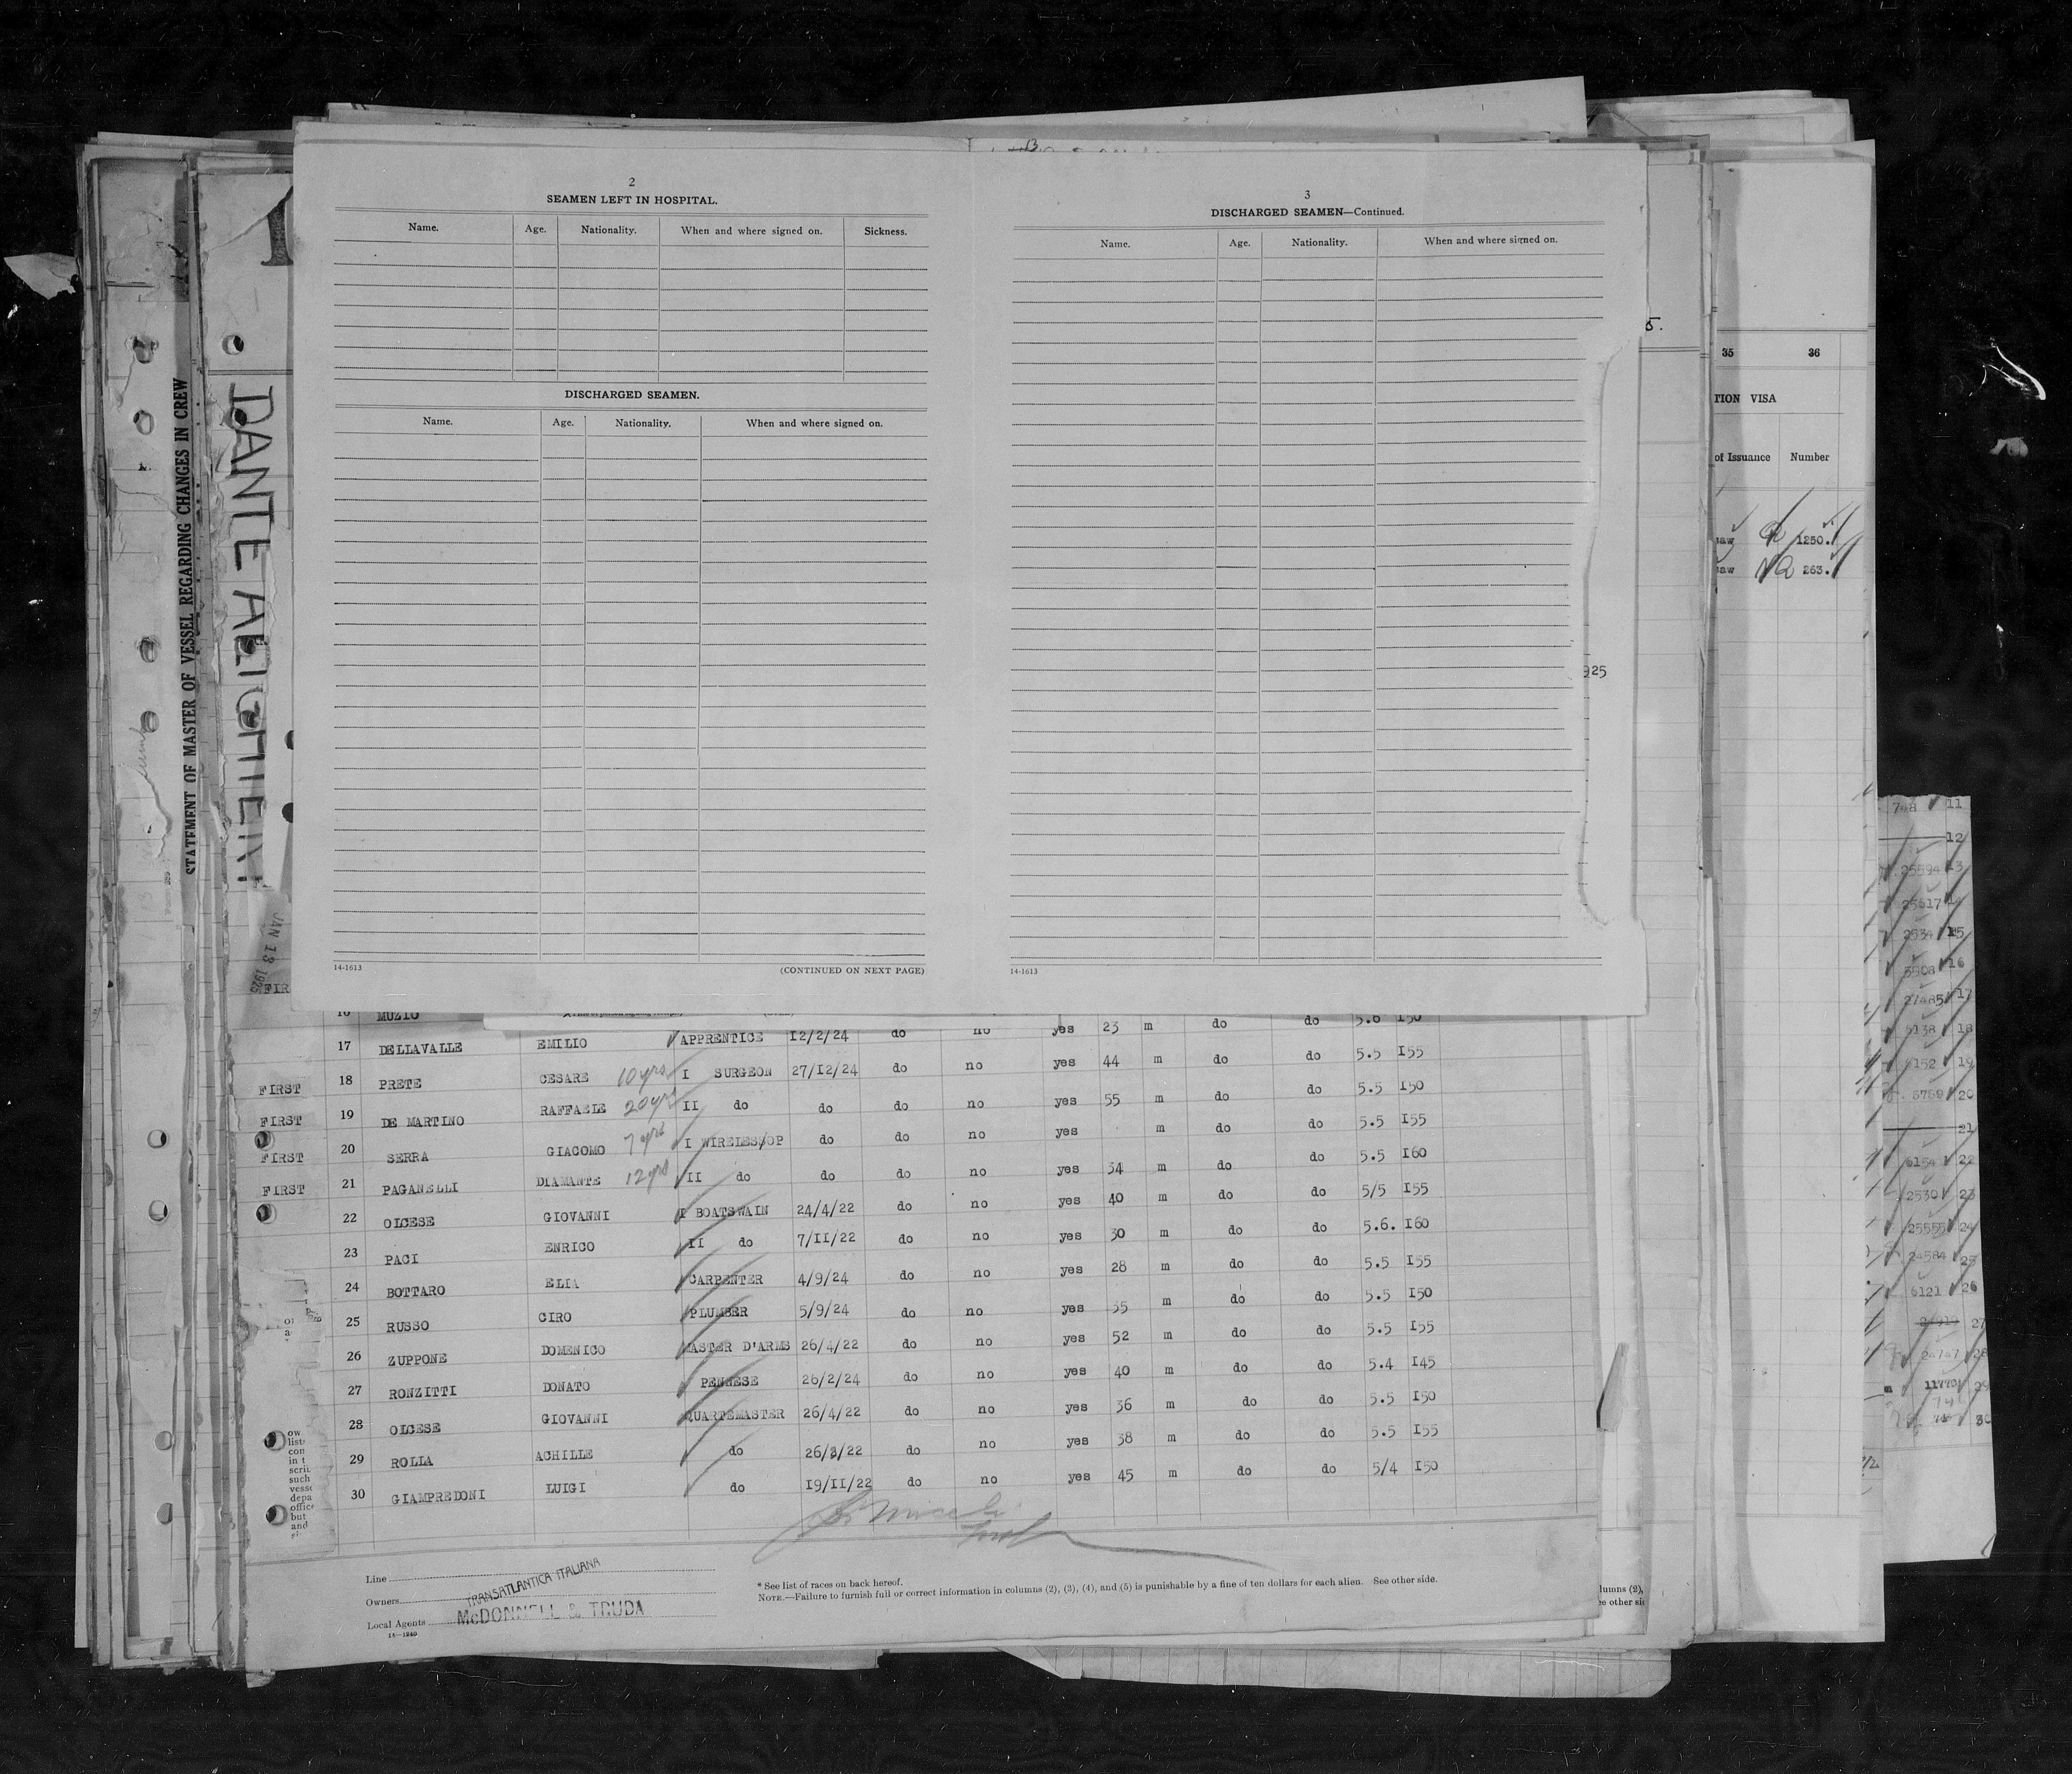 2
SEAMEN LEFT IN HOSPITAL.
Name. Age. Nationality. When and where signed on. Sickness.
DISCHARGED SEAMEN.
Name. Age. Nationality. When and where signed on.
14-1613 (CONTINUED ON NEXT PAGE)
3
DISCHARGED SEAMEN—Continued.
Name. Age. Nationality. When and where signed on.
14-1613
STATEMENT OF MASTER OF VESSEL REGARDING CHANGES IN CREW
DANTE ALIGHIERI
JAN 13 1925
FIR
5.
925
35 36
TION VISA
of Issuance Number
saw 1250.
saw 263.
16 MUZIO 5.6 I50
17 DELLAVALLE EMILIO APPRENTICE I2/2/24 do no yes 23 m do do 5.5 I55
FIRST 18 PRETE CESARE 10 yrs I SURGEON 27/I2/24 do no yes 44 m do do 5.5 I50
FIRST 19 DE MARTINO RAFFAELE 20 yrs II do do do no yes 55 m do do 5.5 I55
FIRST 20 SERRA GIACOMO 7 yrs I WIRELESS/OP do do no yes m do do 5.5 I60
FIRST 21 PAGANELLI DIAMANTE 12 yrs II do do do no yes 34 m do do 5/5 I55
22 OLCESE GIOVANNI I BOATSWAIN 24/4/22 do no yes 40 m do do 5.6. I60
23 PACI ENRICO II do 7/II/22 do no yes 30 m do do 5.5 I55
24 BOTTARO ELIA CARPENTER 4/9/24 do no yes 28 m do do 5.5 I50
25 RUSSO CIRO PLUMBER 5/9/24 do no yes 35 m do do 5.5 I55
26 ZUPPONE DOMENICO MASTER D'ARMS 26/4/22 do no yes 52 m do do 5.4 I45
27 RONZITTI DONATO PENNESE 26/2/24 do no yes 40 m do do 5.5 I50
28 OLCESE GIOVANNI QUARTEMASTER 26/4/22 do no yes 36 m do do 5.5 I55
29 ROLLA ACHILLE do 26/8/22 do no yes 38 m do do 5/4 I50
30 GIAMPREDONI LUIGI do I9/II/22 do no yes 45 m do do
ow
list
con
in t
scril
such
vesse
depa
office
but
and
Line
Owners TRANSATLANTICA ITALIANA
Local Agents McDONNELL & TRUDA
14—1240
* See list of races on back hereof.
NOTE.—Failure to furnish full or correct information in columns (2), (3), (4), and (5) is punishable by a fine of ten dollars for each alien. See other side.
lumns (2),
ee other sid
748 11
12
25594 13
25617 14
2534 15
5508 16
27485 17
5138 18
6152 19
5759 20
21
6154 22
2530 23
25555 24
24584 25
6121 26
27
24747 28
11770 29
30